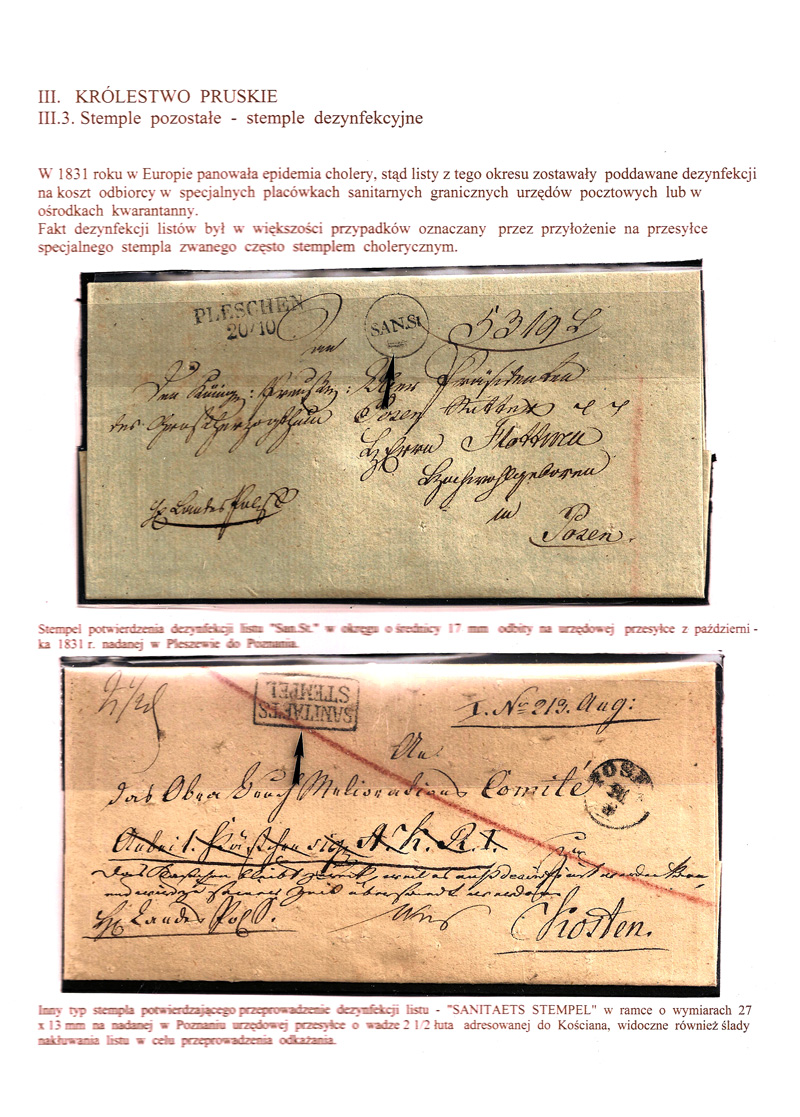 III. KRÓLESTWO PRUSKIE
III.3. Stemple pozostałe - stemple dezynfekcyjne
W 1831 roku w Europie panowała epidemia cholery, stąd listy z tego okresu zostawały poddawane dezynfekcji
na koszt odbiorcy w specjalnych placówkach sanitarnych granicznych urzędów pocztowych lub w
ośrodkach kwarantanny.
Fakt dezynfekcji listów był w większości przypadków oznaczany przez przyłożenie na przesyłce
specjalnego stempla zwanego często stemplem cholerycznym.
PLESCHEN
20/10
SAN.St
5319
an
Den Königl: Preuß: Ober Präsidenten
des Großherzogthum Posen
Herrn Flottwell
Hochwohlgeboren
in
Posen.
Stempel potwierdzenia dezynfekcji listu "San.St." w okręgu o średnicy 17 mm odbity na urzędowej przesyłce z październi -
ka 1831 r. nadanej w Pleszewie do Poznania.
SANITAETS
STEMPEL
I. No 213. Aug:
An
das Obra Bruch Meliorations Comité
POSEN
A. K. R. 1.
Kosten.
Inny typ stempla potwierdzającego przeprowadzenie dezynfekcji listu - "SANITAETS STEMPEL" w ramce o wymiarach 27
x 13 mm na nadanej w Poznaniu urzędowej przesyłce o wadze 2 1/2 łuta adresowanej do Kościana, widoczne również ślady
nakłuwania listu w celu przeprowadzenia odkażania.